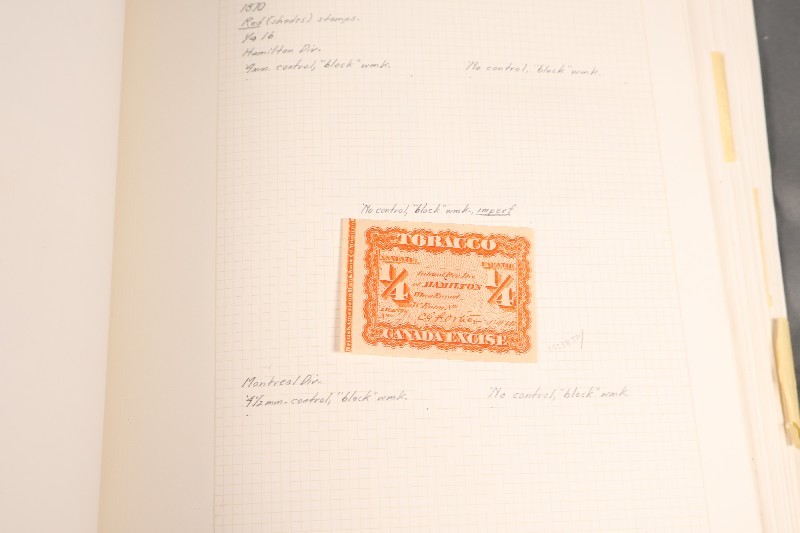 1870
Red (shades) stamps.
Hamilton Div.
9mm. control, "block" wmk.
No control, "block" wmk.
No control, "block" wmk., imperf
TOBACCO
1/4 1/4
Inland Rev. Div.
of HAMILTON
CANADA EXCISE
Montreal Div.
4½mm. control, "block" wmk.
No control, "block" wmk.